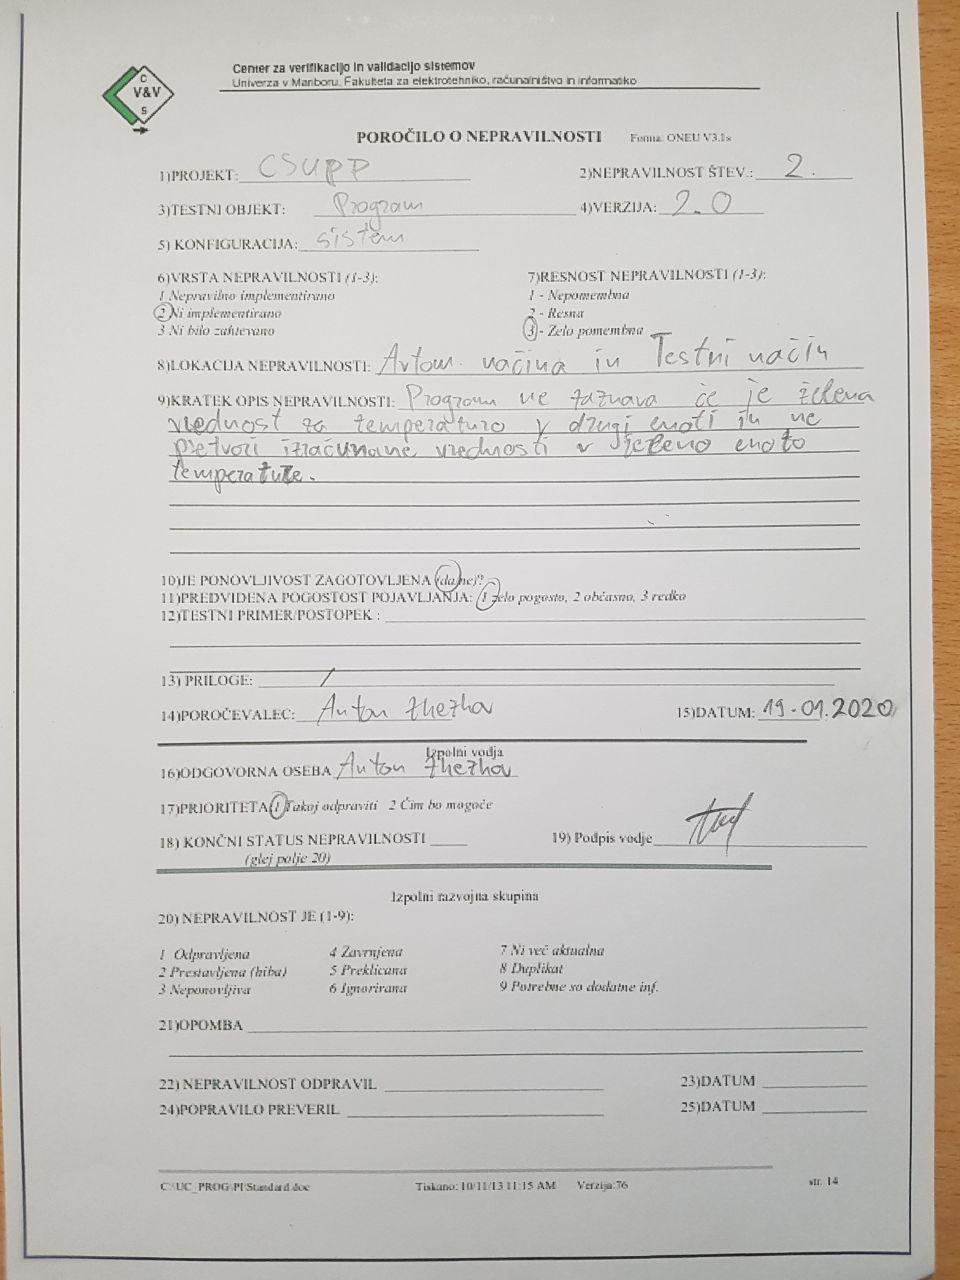 C
V&V
S
Center za verifikacijo in validacijo sistemov
Univerza v Mariboru, Fakulteta za elektrotehniko, računalništvo in informatiko
POROČILO O NEPRAVILNOSTI Forma: ONEU V3.1s
1)PROJEKT: CSUPP 2)NEPRAVILNOST ŠTEV.: 2.
3)TESTNI OBJEKT: Program 4)VERZIJA: 2.0
5) KONFIGURACIJA: sistem
6)VRSTA NEPRAVILNOSTI (1-3): 7)RESNOST NEPRAVILNOSTI (1-3):
1 Nepravilno implementirano 1 - Nepomembna
2 Ni implementirano 2 - Resna
3 Ni bilo zahtevano 3 - Zelo pomembna
8)LOKACIJA NEPRAVILNOSTI: Avtom. načina in Testni način
9)KRATEK OPIS NEPRAVILNOSTI: Program ne zaznava če je želena
vrednost za temperaturo v drugi enoti in ne
pretvori izračunane vrednosti v enoto
temperature.
10)JE PONOVLJIVOST ZAGOTOVLJENA (da/ne)?
11)PREDVIDENA POGOSTOST POJAVLJANJA: 1 zelo pogosto, 2 občasno, 3 redko
12)TESTNI PRIMER/POSTOPEK :
13) PRILOGE: /
14)POROČEVALEC: Anton Zhezhov 15)DATUM: 19.01.2020
Izpolni vodja
16)ODGOVORNA OSEBA Anton Zhezhov
17)PRIORITETA 1 Takoj odpraviti 2 Čim bo mogoče
18) KONČNI STATUS NEPRAVILNOSTI 19) Podpis vodje
(glej polje 20)
Izpolni razvojna skupina
20) NEPRAVILNOST JE (1-9):
1 Odpravljena 4 Zavrnjena 7 Ni več aktualna
2 Prestavljena (hiba) 5 Preklicana 8 Duplikat
3 Neponovljiva 6 Ignorirana 9 Potrebne so dodatne inf.
21)OPOMBA
22) NEPRAVILNOST ODPRAVIL 23)DATUM
24)POPRAVILO PREVERIL 25)DATUM
C:\UC_PROG\PI\Standard.doc Tiskano: 10/11/13 11:15 AM Verzija:76 str. 14